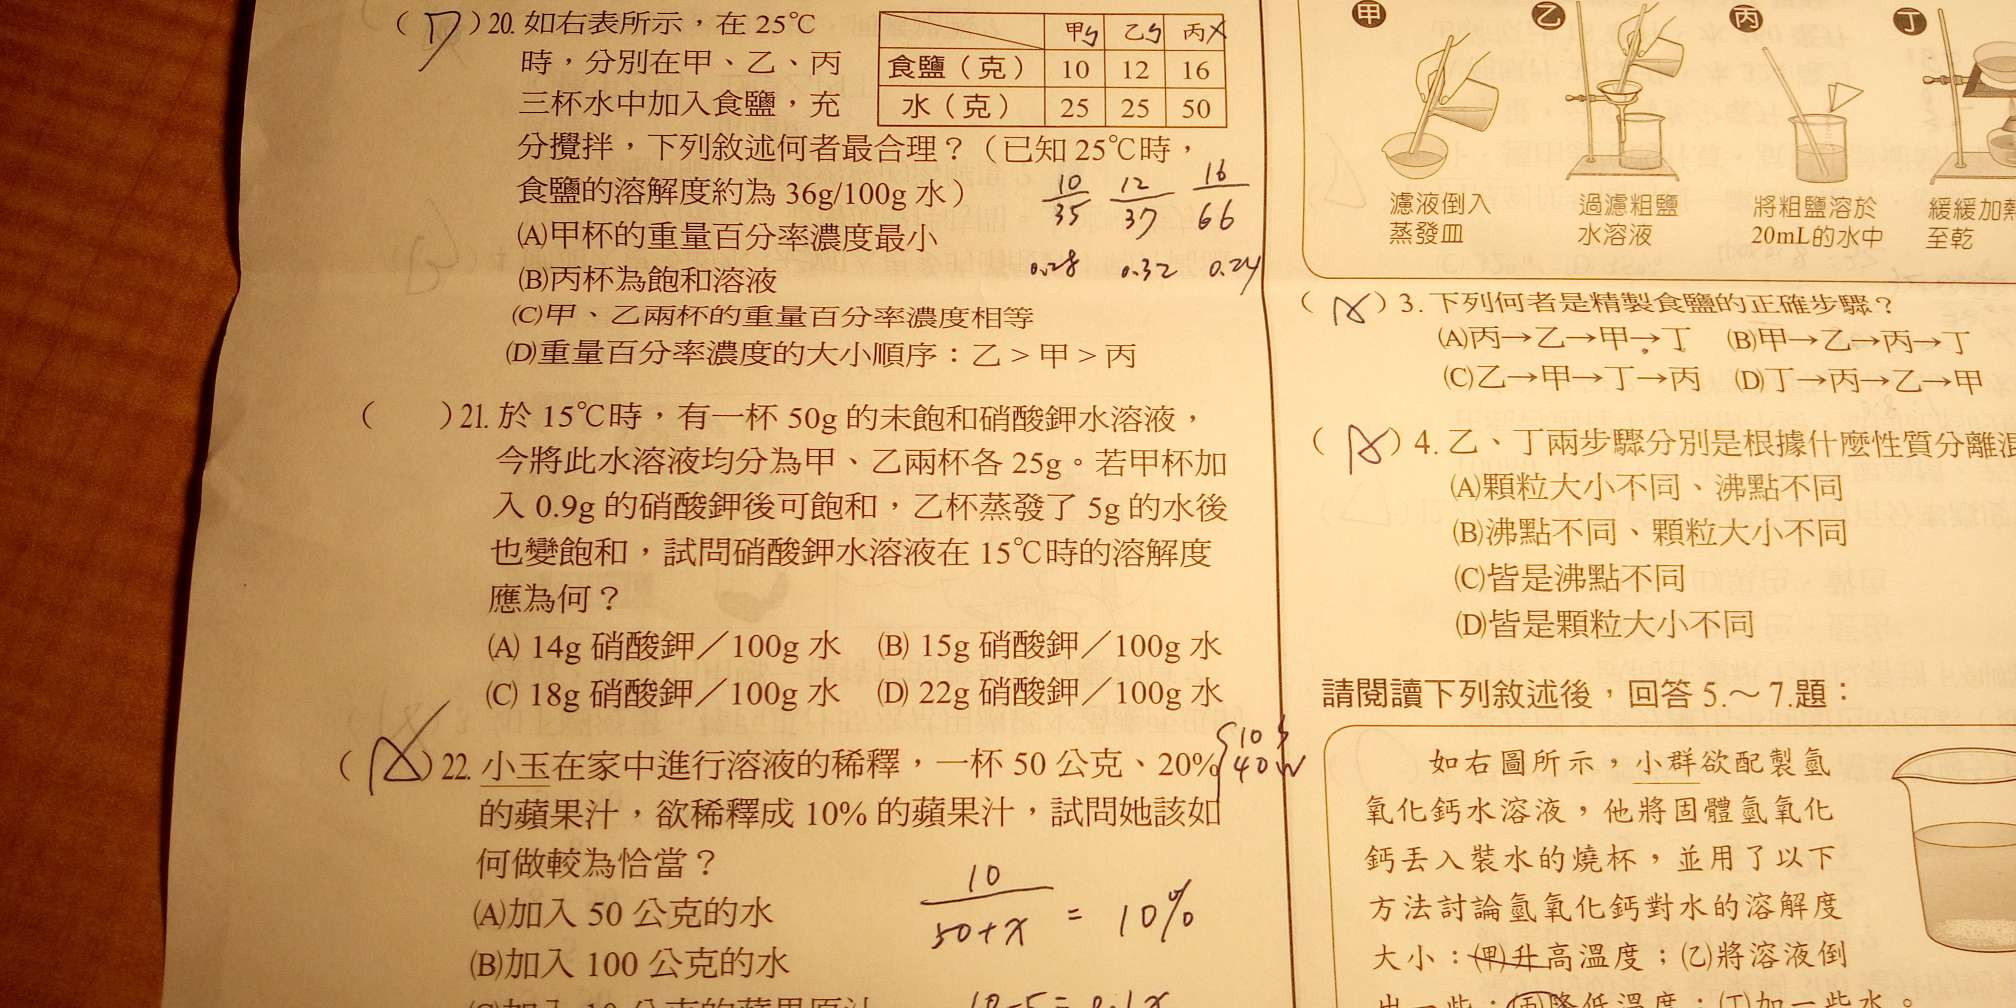 20. 如右表所示，在 25℃
時，分別在甲、乙、丙
三杯水中加入食鹽，充
分攪拌，下列敘述何者最合理？（已知 25℃時，
食鹽的溶解度約為 36g/100g 水）
甲 乙 丙
食鹽（克） 10 12 16
水（克） 25 25 50
10/35 12/37 16/66
0.28 0.32 0.24
(A)甲杯的重量百分率濃度最小
(B)丙杯為飽和溶液
(C)甲、乙兩杯的重量百分率濃度相等
(D)重量百分率濃度的大小順序：乙 > 甲 > 丙
( )21. 於 15℃時，有一杯 50g 的未飽和硝酸鉀水溶液，
今將此水溶液均分為甲、乙兩杯各 25g。若甲杯加
入 0.9g 的硝酸鉀後可飽和，乙杯蒸發了 5g 的水後
也變飽和，試問硝酸鉀水溶液在 15℃時的溶解度
應為何？
(A) 14g 硝酸鉀／100g 水 (B) 15g 硝酸鉀／100g 水
(C) 18g 硝酸鉀／100g 水 (D) 22g 硝酸鉀／100g 水
(A)22. 小玉在家中進行溶液的稀釋，一杯 50 公克、20%
的蘋果汁，欲稀釋成 10% 的蘋果汁，試問她該如
何做較為恰當？
(A)加入 50 公克的水
(B)加入 100 公克的水
10/50+x = 10%
甲 乙 丙 丁
濾液倒入
蒸發皿
過濾粗鹽
水溶液
將粗鹽溶於
20mL的水中
緩緩加熱
至乾
(A)3. 下列何者是精製食鹽的正確步驟？
(A)丙→乙→甲→丁 (B)甲→乙→丙→丁
(C)乙→甲→丁→丙 (D)丁→丙→乙→甲
(A)4. 乙、丁兩步驟分別是根據什麼性質分離混
(A)顆粒大小不同、沸點不同
(B)沸點不同、顆粒大小不同
(C)皆是沸點不同
(D)皆是顆粒大小不同
請閱讀下列敘述後，回答 5.～ 7.題：
如右圖所示，小群欲配製氫
氧化鈣水溶液，他將固體氫氧化
鈣丟入裝水的燒杯，並用了以下
方法討論氫氧化鈣對水的溶解度
大小：(甲)升高溫度；(乙)將溶液倒
出一些；(丙)降低溫度；(丁)加一些水。